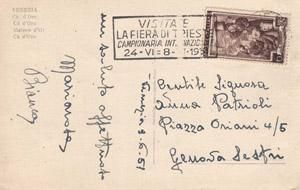 VENEZIA
Cà d'Oro
Cà d'Oro
Maison d'Or
Cà d'Oro
VISITATE
LA FIERA DI TRIESTE
CAMPIONARIA INTERNAZIONALE
24-VI=8-
Venezia 3-6-51
un saluto affettuoso
Mariarosa
Bianca
Gentile Signora
Anna Patrioli
Piazza Oriani 4/5
Genova Sestri